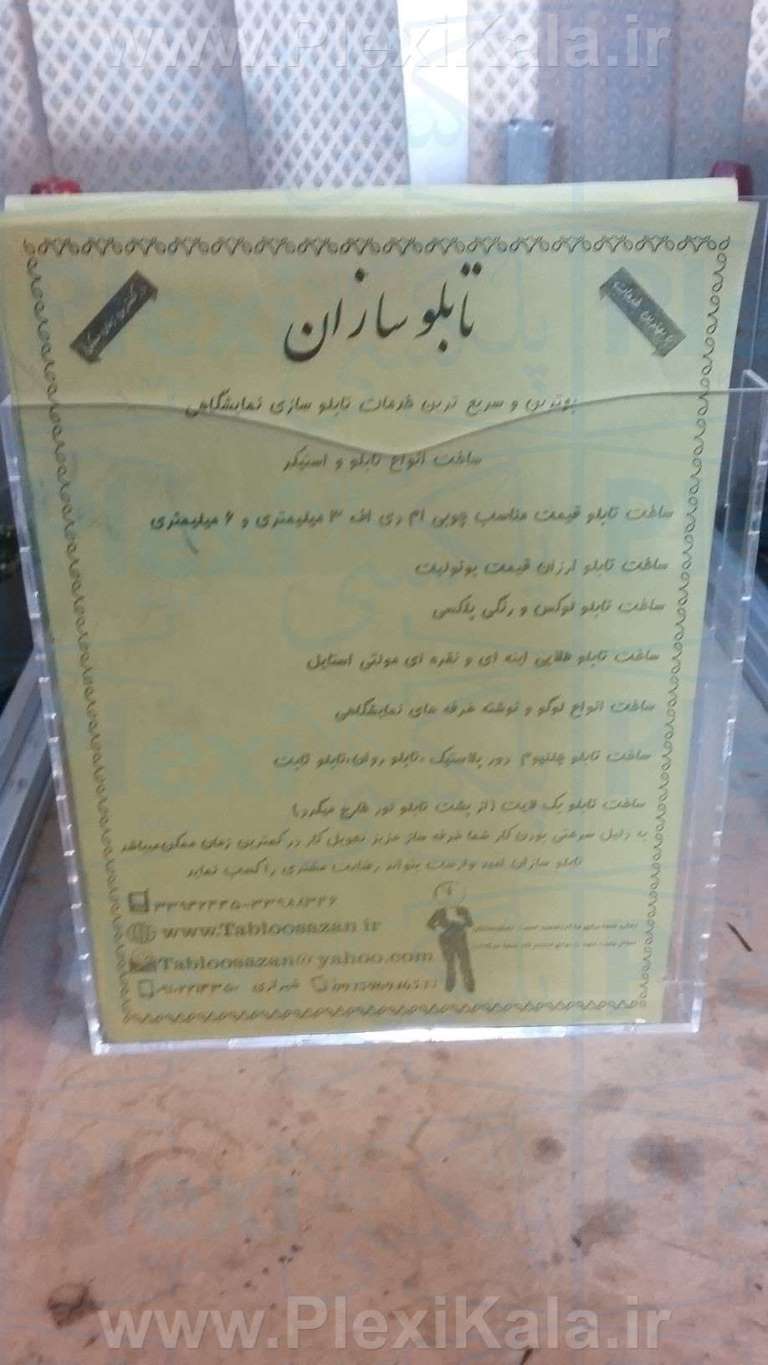 www.PlexiKala.ir
تابلو سازان
بهترین و سریع ترین خدمات تابلو سازی نمایشگاهی
ساخت انواع تابلو و استیکر
ساخت تابلو قیمت مناسب چوبی ام دی اف ۳ میلیمتری و ۶ میلیمتری
ساخت تابلو ارزان قیمت یونولیت
ساخت تابلو لوکس و رنگی پلکسی
ساخت تابلو طلایی اینه ای و نقره ای مولتی استایل
ساخت انواع لوگو و نوشته غرفه های نمایشگاهی
ساخت تابلو چلنیوم دور پلاستیک ،تابلو روان،تابلو ثابت
ساخت تابلو بک لایت (از پشت تابلو نور خارج میگردد)
به دلیل سرعتی بودن کار شما غرفه ساز عزیز تحویل کار در کمترین زمان ممکن میباشد
تابلو سازان امید وارست بتواند رضایت مشتری را کسب نماید
www.Tabloosazan.ir
Tabloosazan@yahoo.com
www.PlexiKala.ir